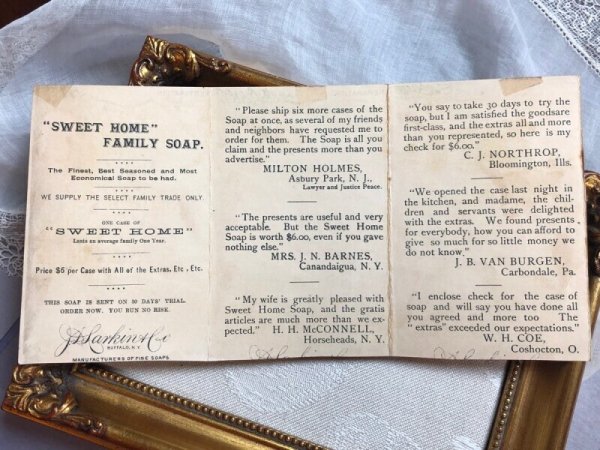 "SWEET HOME"
FAMILY SOAP.
The Finest, Best Seasoned and Most
Economical Soap to be had.
WE SUPPLY THE SELECT FAMILY TRADE ONLY
ONE CASE OF
"SWEET HOME"
Lasts an average family One Year.
Price $6 per Case with All of the Extras, Etc., Etc.
THIS SOAP IS SENT ON 30 DAYS' TRIAL.
ORDER NOW. YOU RUN NO RISK.
J.D. Larkin & Co
BUFFALO, N.Y.
MANUFACTURERS OF FINE SOAPS
"Please ship six more cases of the
Soap at once, as several of my friends
and neighbors have requested me to
order for them. The Soap is all you
claim and the presents more than you
advertise."
MILTON HOLMES,
Asbury Park, N. J.,
Lawyer and Justice Peace.
"The presents are useful and very
acceptable. But the Sweet Home
Soap is worth $6.00, even if you gave
nothing else."
MRS. J. N. BARNES,
Canandaigua, N. Y.
"My wife is greatly pleased with
Sweet Home Soap, and the gratis
articles are much more than we ex-
pected." H. H. McCONNELL,
Horseheads, N. Y.
"You say to take 30 days to try the
soap, but I am satisfied the goods are
first-class, and the extras all and more
than you represented, so here is my
check for $6.00."
C. J. NORTHROP,
Bloomington, Ills.
"We opened the case last night in
the kitchen, and madame, the chil-
dren and servants were delighted
with the extras. We found presents
for everybody, how you can afford to
give so much for so little money we
do not know."
J. B. VAN BURGEN,
Carbondale, Pa.
"I enclose check for the case of
soap and will say you have done all
you agreed and more too. The
"extras" exceeded our expectations."
W. H. COE,
Coshocton, O.